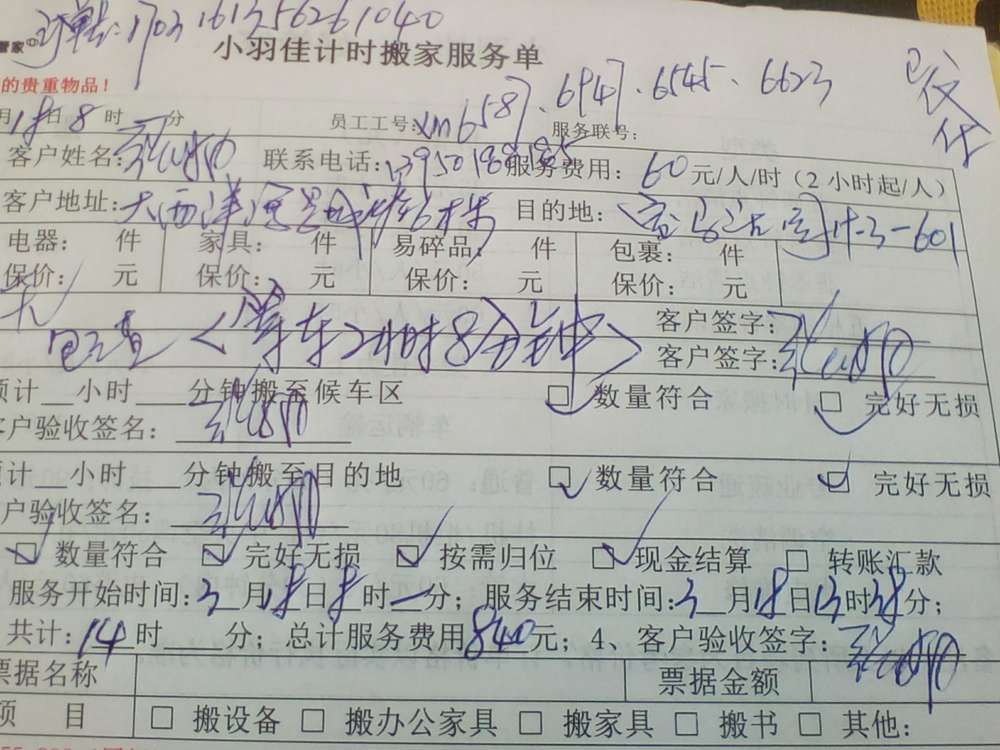 管家 订单号:1703161356261040
小羽佳计时搬家服务单
的贵重物品!
月18日8时一分 员工工号:xm6587、6947、6545、6623 服务联号: 已付
客户姓名: 联系电话:13950189185 服务费用:60元/人/时(2小时起/人)
客户地址:大西洋海景城 目的地: 601
电器: 件 家具: 件 易碎品: 件 包裹: 件
保价: 元 保价: 元 保价: 元 保价: 元
客户签字:
(等车2小时8分钟)
客户签字:
预计__小时____分钟搬至候车区 ☑ 数量符合 ☑ 完好无损
客户验收签名:
预计__小时____分钟搬至目的地 ☑ 数量符合 ☑ 完好无损
客户验收签名:
☑ 数量符合 ☑ 完好无损 ☑ 按需归位 ☑ 现金结算 □ 转账汇款
服务开始时间:3月18日8时一分;服务结束时间:3月18日13时38分;
共计:14时 分;总计服务费用840元;4、客户验收签字:
票据名称 票据金额
项 目 □ 搬设备 □ 搬办公家具 □ 搬家具 □ 搬书 □ 其他: